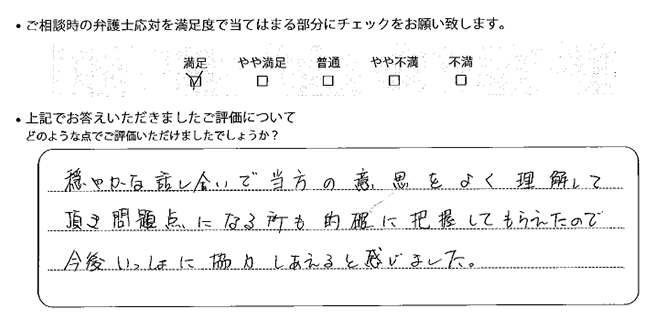 • ご相談時の弁護士応対を満足度で当てはまる部分にチェックをお願い致します。
満足 やや満足 普通 やや不満 不満
☑ □ □ □ □
• 上記でお答えいただきましたご評価について
どのような点でご評価いただけましたでしょうか？
穏やかな話し合いで当方の意思をよく理解して
頂き問題点になる所も的確に把握してもらえたので
今後いっしょに協力しあえると感じました。